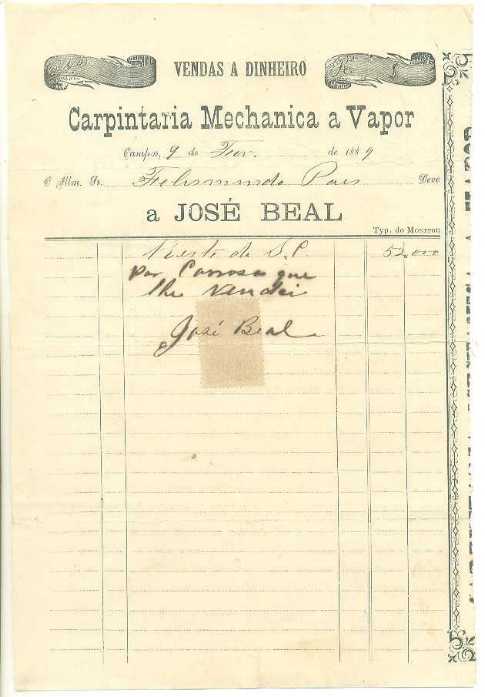 VENDAS A DINHEIRO
Carpintaria Mechanica a Vapor
Campos, 9 de Fev. de 1889
O Illm. Sr. Paes Deve
a JOSÉ BEAL
Typ. do Monitor
Resto de S. C. 52,000
por Carrosa que
lhe vendi
José Beal